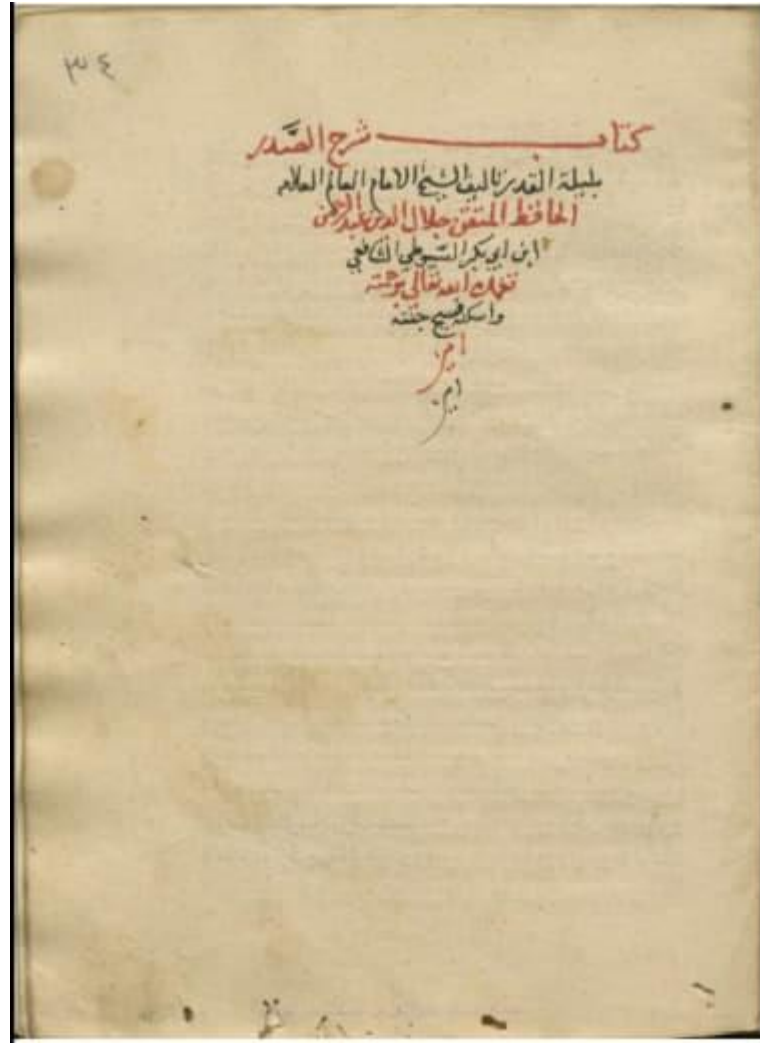 ٣٤
كتاب شرح الصدر
بليلة القدر تاليف الشيخ الامام العالم العلامه
الحافظ المتقن جلال الدين عبد الرحمن
ابن ابي بكر السيوطي الشافعي
تغمده الله تعالى برحمته
واسكنه فسيح جنته
امين
امين